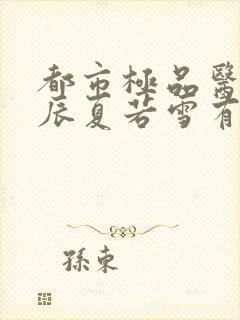 都市極品醫
辰夏若雪有
孫東